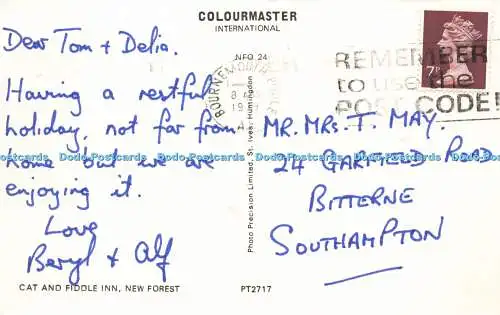 COLOURMASTER
INTERNATIONAL
Dear Tom + Delia.
Having a restful
holiday, not far from
home but we are
enjoying it.
Love
Beryl + Alf
CAT AND FIDDLE INN, NEW FOREST
NFO 24
Photo Precision Limited, St. Ives, Huntingdon
PT2717
BOURNEMOUTH
REMEMBER
to use the
POST CODE!
MR. MRS. T. MAY.
24 GARFIELD ROAD
BITTERNE
SOUTHAMPTON
Dodo-Postcards Dodo-Postcards Dodo-Postcards Dodo-Postcards Dodo-Postcards